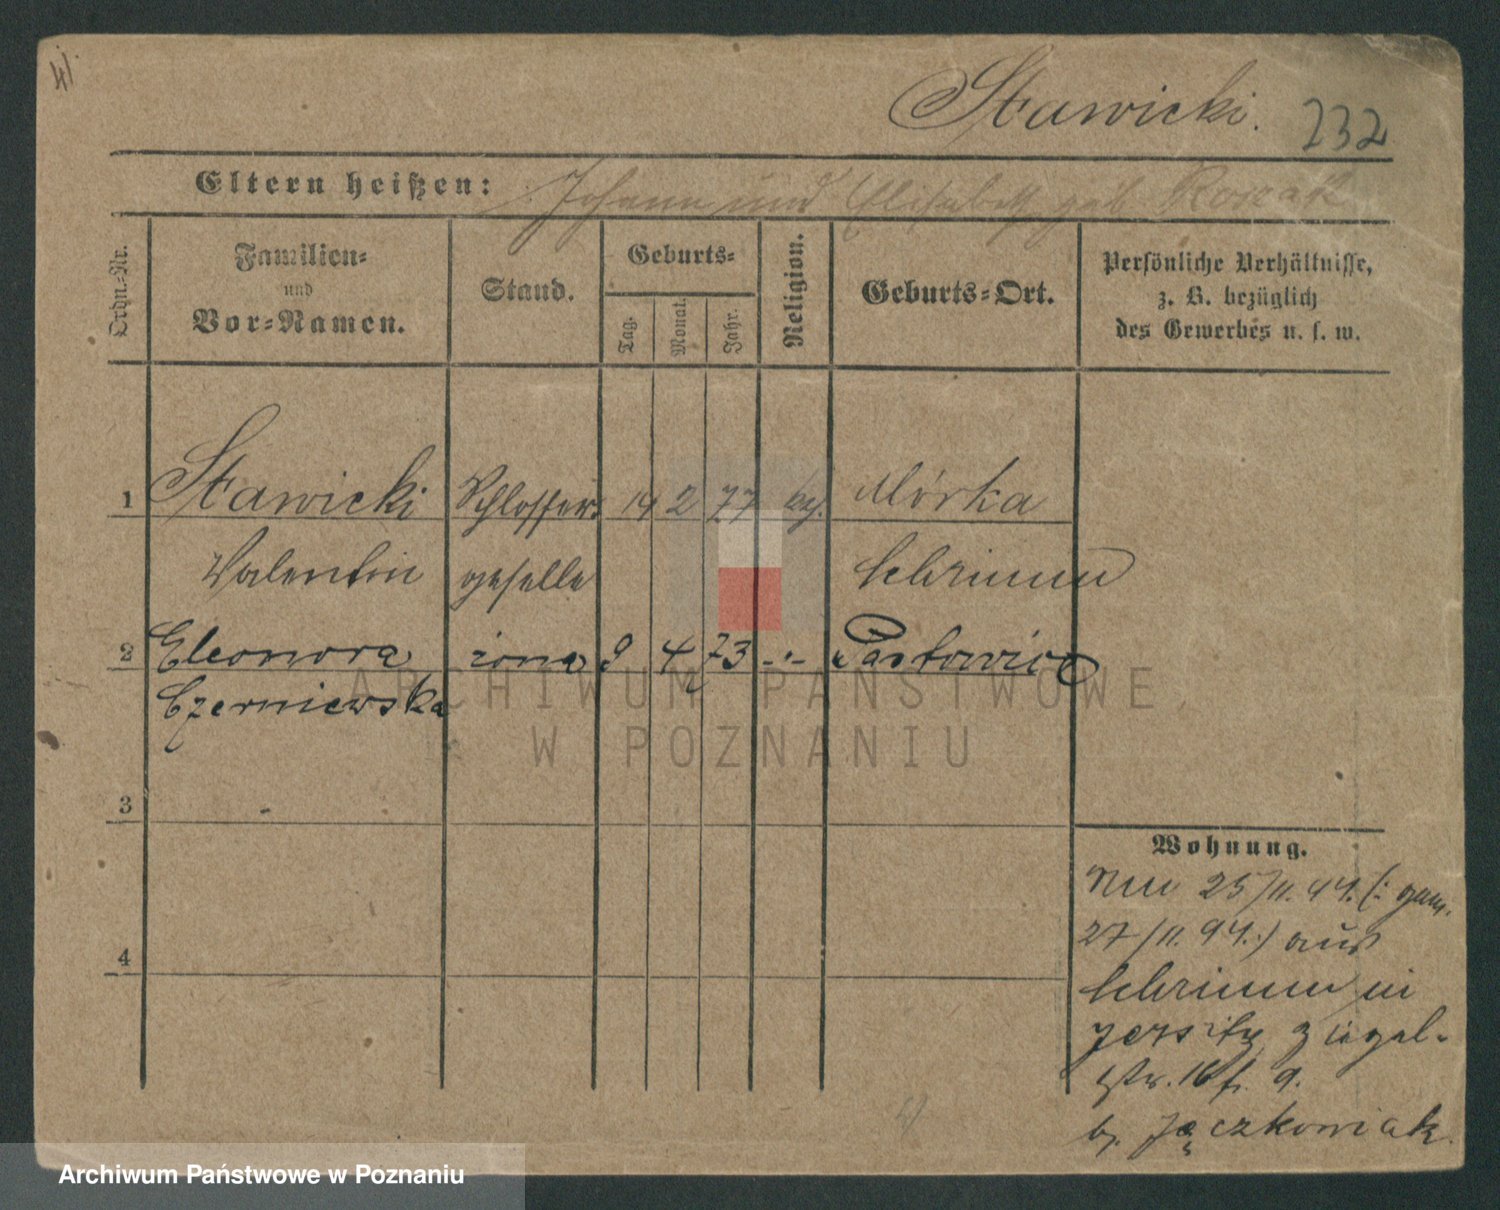 41.
Stawicki.
232
Eltern heißen: Johann und Elisabeth geb Kozak
Ordn.-Nr.
Familien-
und
Vor-Namen.
Stand.
Geburts-
Tag.
Monat.
Jahr.
Religion.
Geburts-Ort.
Persönliche Verhältnisse,
z. B. bezüglich
des Gewerbes u. s. w.
1 Stawicki Schlosser- 14 2 77 Mórka
Valentin geselle Schrimm
2 Eleonora żona 9 4 73 -"-
Czerniewska
ARCHIWUM PAŃSTWOWE
W POZNANIU
3
4
Wohnung.
25/11. 94. (:
27/11. 94.:) aus
Schrimm in
Jersitz, Ziegel-
str. 16 f. 9.
b. Jączkowiak.
Archiwum Państwowe w Poznaniu